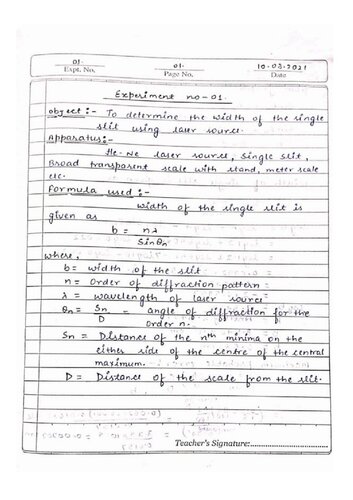 01. 01. 10-03-2021
Expt. No. Page No. Date
Experiment no-01.
object:- To determine the width of the single
slit using laser source.
Apparatus:-
He-Ne laser source, Single Slit,
Broad transparent scale with stand, meter scale
etc.
Formula used:-
width of the single slit is
given as
b = nλ
Sinθn
where,
b = width of the slit
n = Order of diffraction pattern
λ = wavelength of laser source
θn = Sn = angle of diffraction for the
D order n.
Sn = Distance of the nth minima on the
either side of the centre of the central
maximum.
D = Distance of the scale from the slit.
Teacher's Signature: